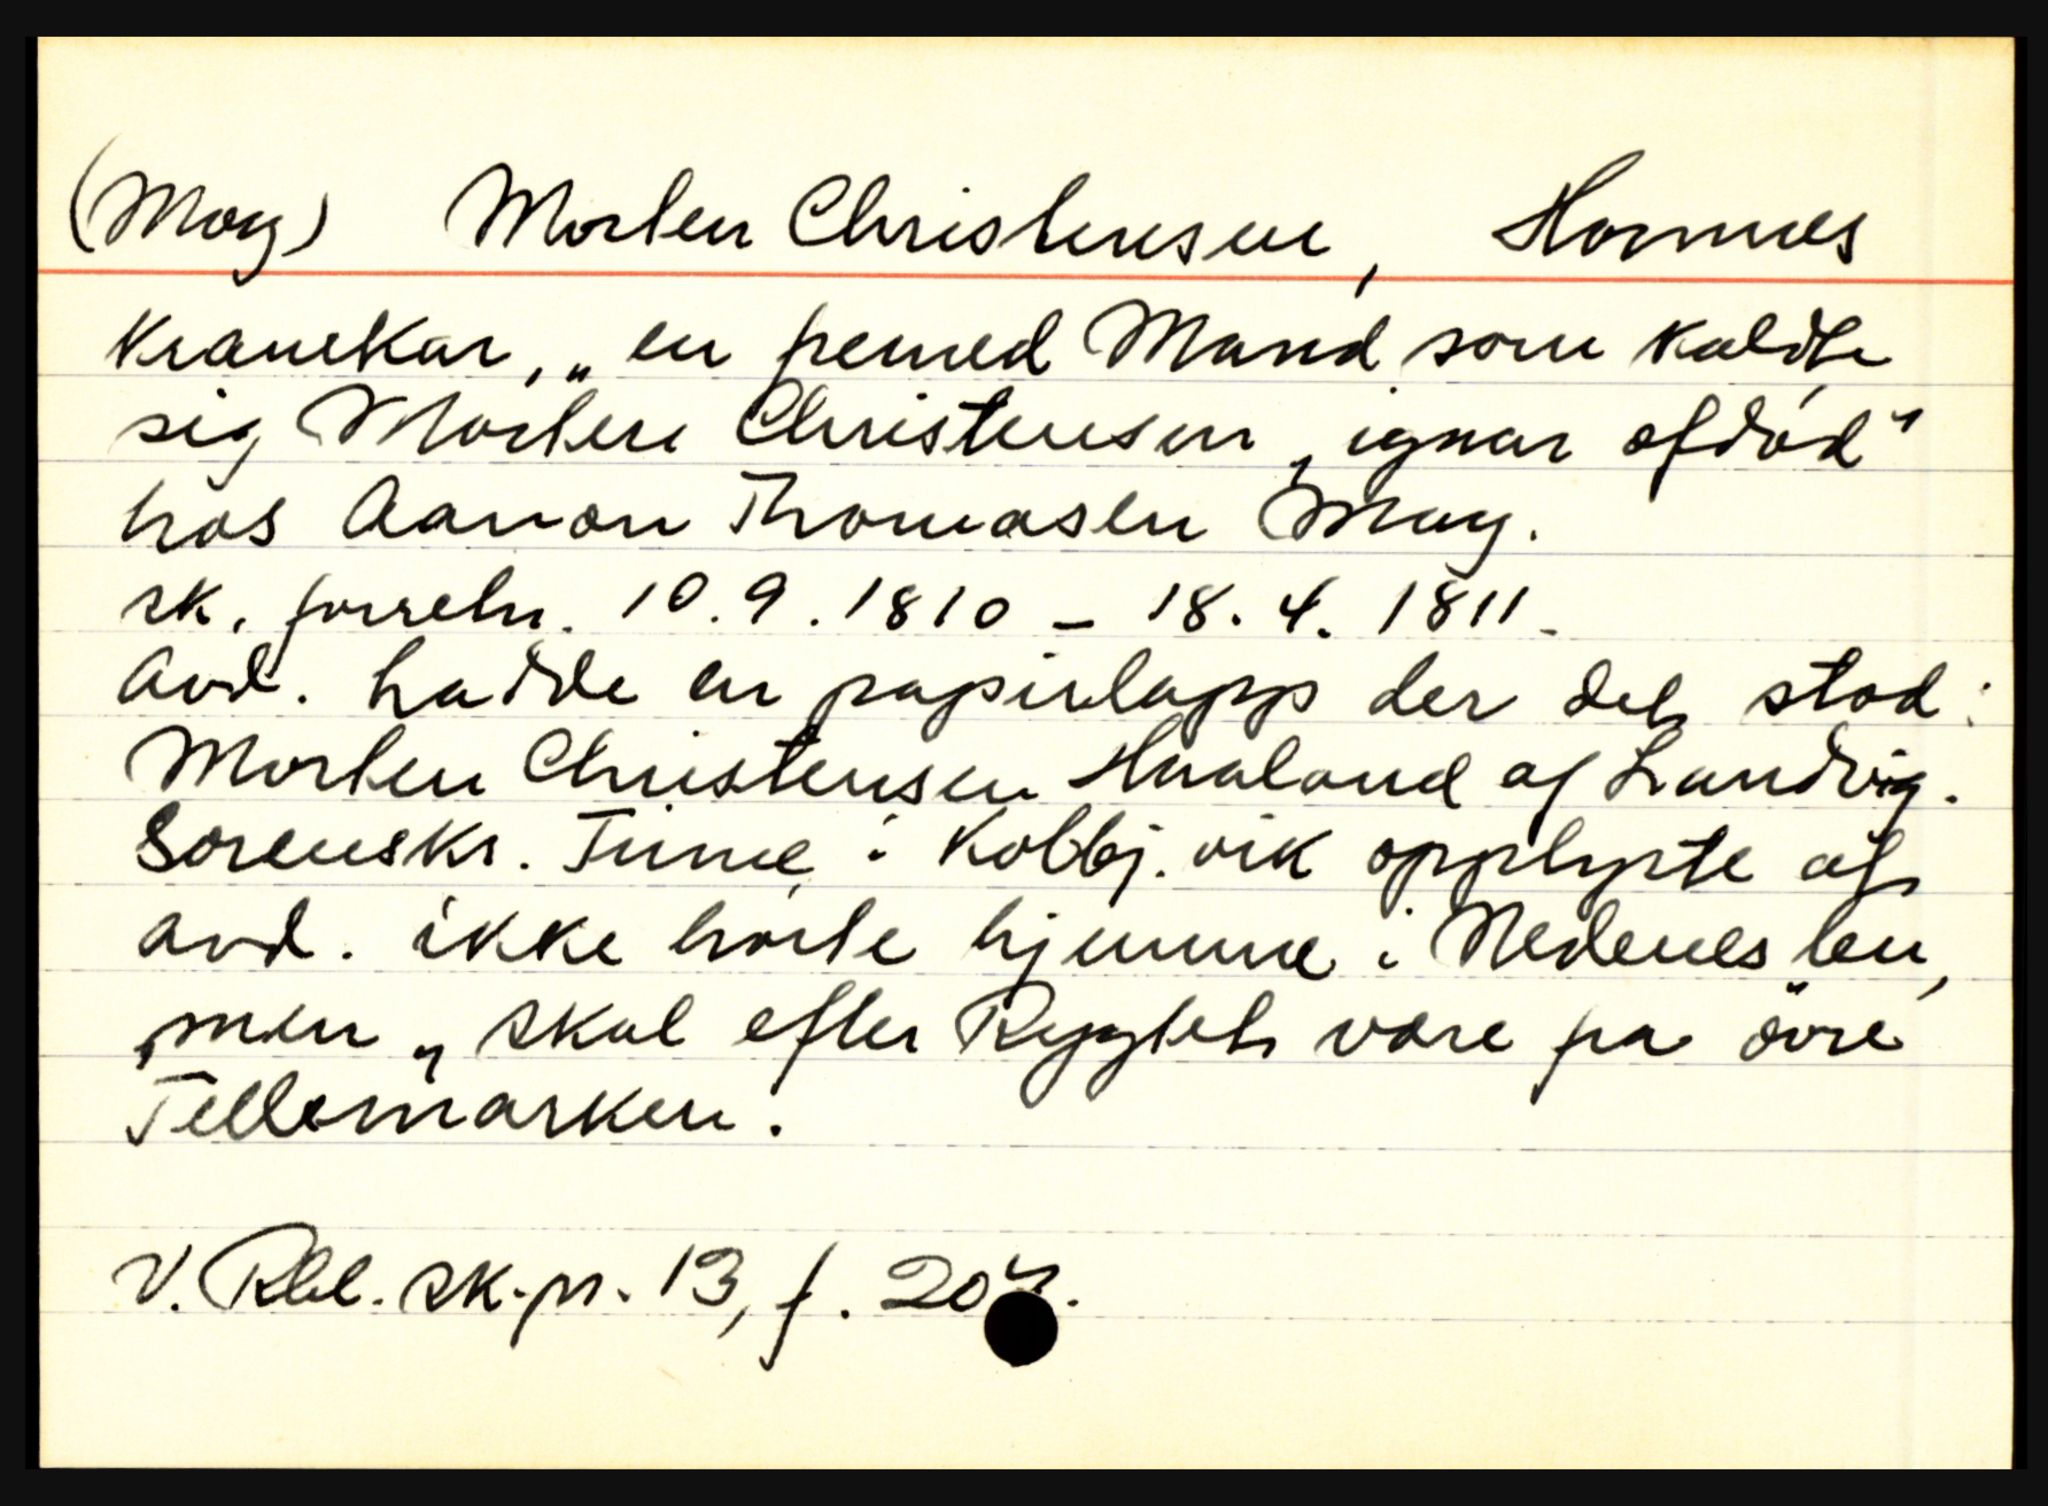 (Moy) Morten Christensen, Hornnes
Kramkar, „en fremed Mand som kaldte
sig Morten Christensen, igaar afdød"
hos Aanon Thomasen Moy.
sk. forretn. 10.9.1810 – 18.4.1811.
Avd. hadde en papirlapp der det stod:
Morten Christensen Haaland af Landvig.
Sorenskr. Tinne i Kolbj.vik opplyste at
avd. ikke hørte hjemme i Nedenes len,
men „skal efter Rygtet være fra øvre
Tellemarken.
V. Rbl. sk.pr. 13, f. 204.